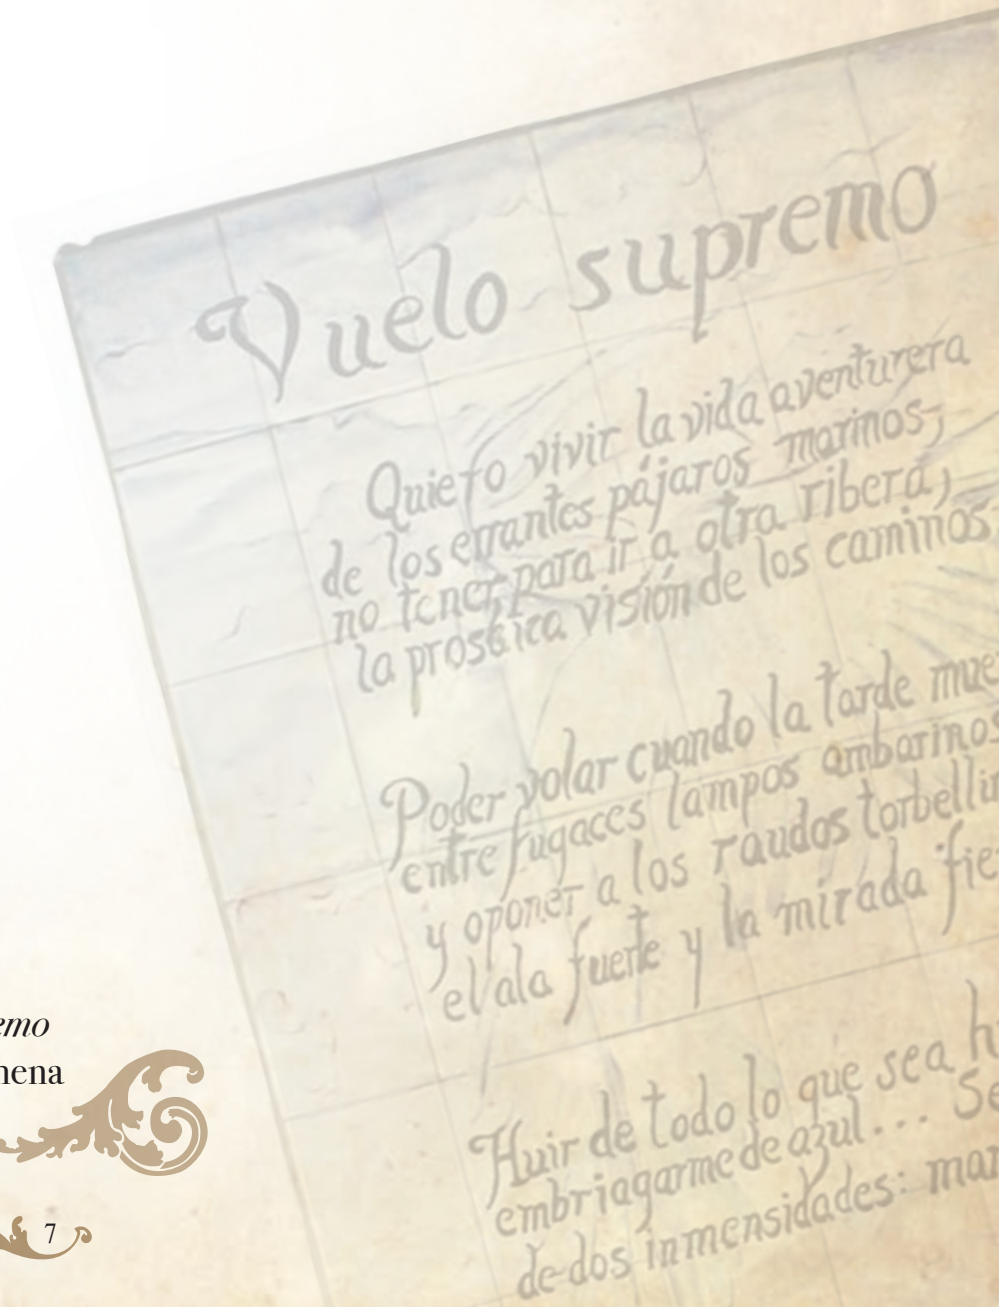 Vuelo supremo
Quiero vivir la vida aventurera
de los errantes pájaros marinos;
no tener, para ir a otra ribera,
la prosaica visión de los caminos.
Poder volar cuando la tarde mue
entre fugaces lampos ambarinos
y oponer a los raudos torbellin
el ala fuerte y la mirada fie
Huir de todo lo que sea h
embriagarme de azul... Se
de dos inmensidades: mar
emo
nena
7